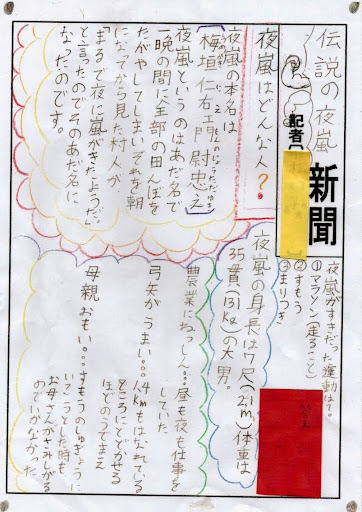 伝説の夜嵐
新聞
記者
夜嵐がすきだった運動は?。
①マラソン(走ること)
②すもう
③まりつき
夜嵐はどんな人?
夜嵐の本名は
梅垣仁右エ門 尉忠之
夜嵐というのはあだ名で
一晩の間に全部の田んぼを
たがやしてしまいそれを朝
になってから見た村人が
「まるで夜に嵐がきたようだ。」
と言ったのでそのあだ名に
なったのです。
夜嵐の身長は7尺(2.1m)体重は
35貫(131kg)の大男。
農業にねっしん…昼も夜も仕事を
していた
弓矢がうまい…4kmもはなれている
ところにとどかせる
ほどのうでまえ
母親おもい…すもうのしゅぎょうに
いこうとした時も
お母さんがさみしがる
のでいかなかった。